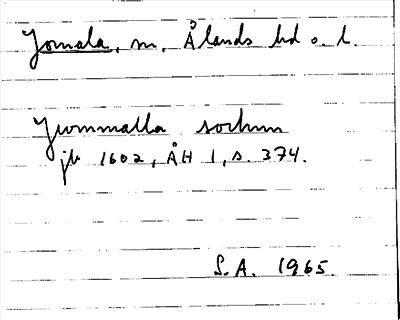 Jomala, m, Ålands hd o. l.
Jwmmalla sochnn
jb 1602, ÅH 1, s. 374.
S.A. 1965